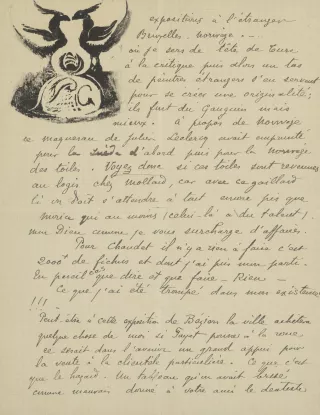 expositions à l'étranger
Bruxelles. Norwège - -
où je sers de tête de Turc
à la critique puis dans un tas
de peintres étrangers s'en servent
pour se créer une originalité;
ils font du Gauguin mais
mieux. à propos de Norwège
ce maquereau de Julien Leclercq avait emprunté
pour la Suède d'abord puis pour la Norwège
des toiles. Voyez donc si ces toiles sont revenues
au logis chez Mollard, car avec ce gaillard
là on doit s'attendre à tout encore pis que
Morice qui au moins (celui-là a du talent).
mon Dieu comme je vous surcharge d'affaires.
Pour Chaudet il n'y a rien à faire c'est
2000f de fichus et dont j'ai pris mon parti.
En pareil cas que dire et que faire - Rien -
Ce que j'ai été trompé dans mon existence
!!!
Peut être à cette exposition de Béziers la ville achètera
quelque chose de moi si Fayet pousse à la roue
ce serait dans l'avenir un grand appui pour
la vente à la clientèle particulière. Ce que c'est
que le hasard. Un tableau qu'on avait laissé
comme mauvais donné à votre ami le dentiste